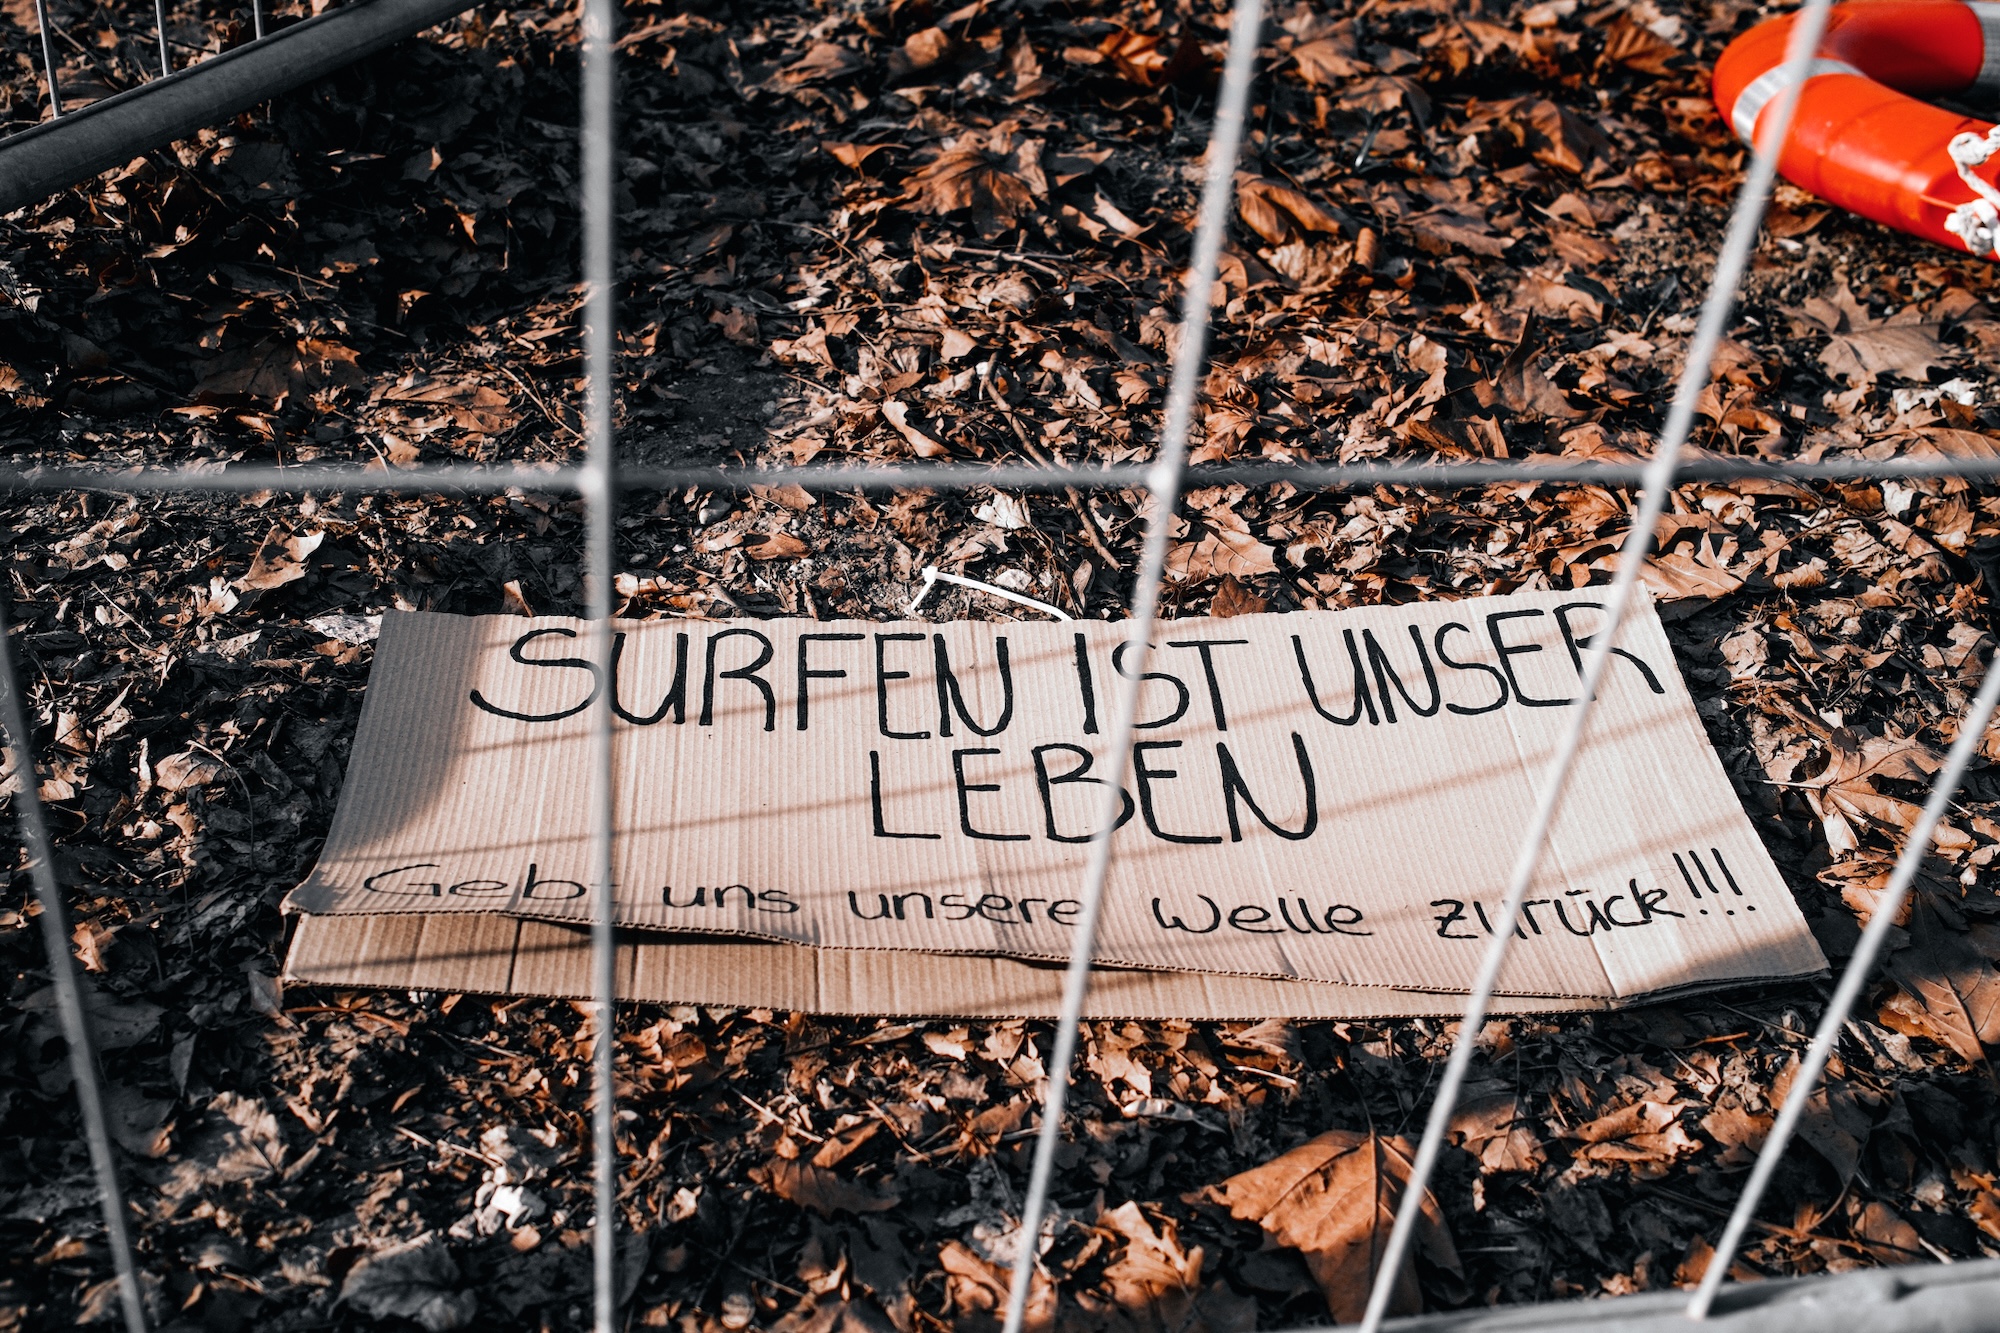 SURFEN IST UNSER
LEBEN
Gebt uns unsere Welle zurück!!!